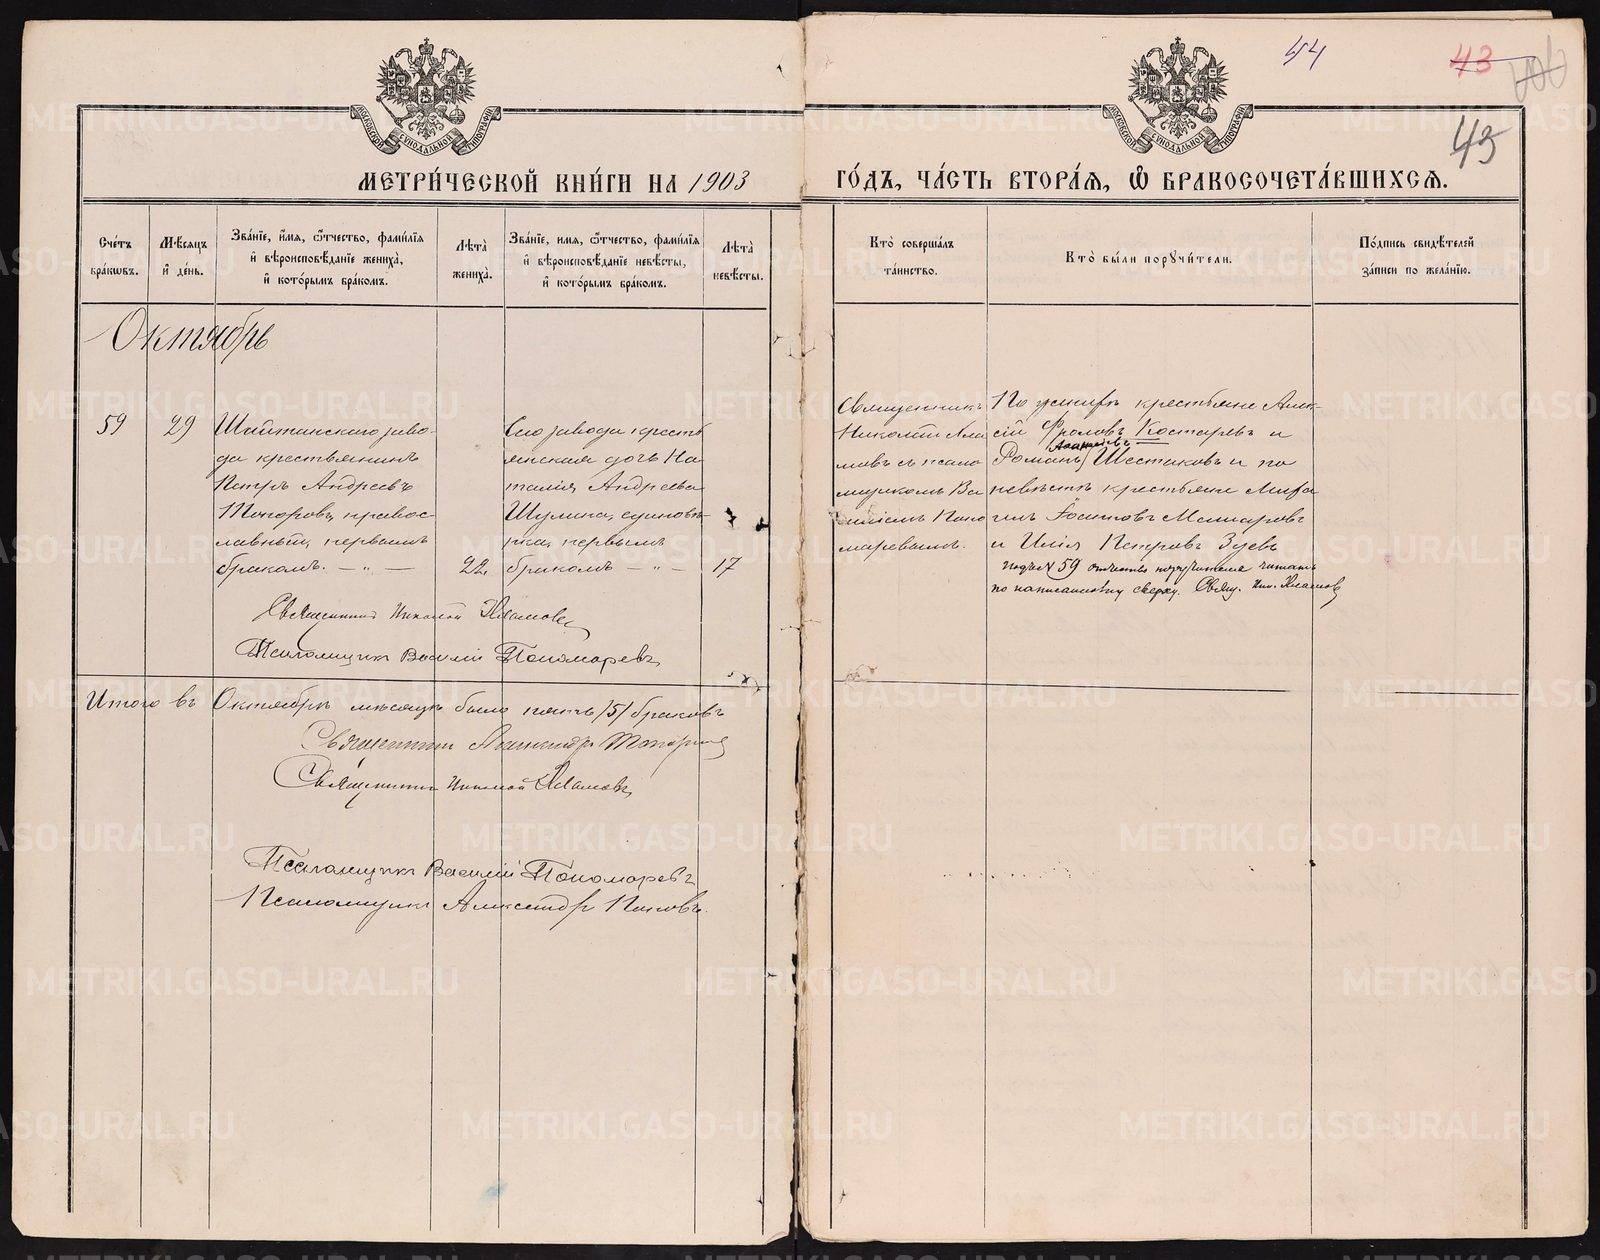 44
43
45
МЕТРИ́ЧЕСКОЙ КНИ́ГИ НА 1903
ГО́ДЪ, ЧА́СТЬ ВТОРА́Я, Ѽ БРАКОСОЧЕТА́ВШИХСЯ.
Сче́тъ бра́кѡвъ.
Мѣ́сяцъ и҆ де́нь.
Зва́нїе, и҆́мя, ѻ҆́тчество, фами́лїя и҆ вѣроисповѣ́данїе жениха̀, и҆ кото́рымъ бра́комъ.
Лѣта̀ жениха̀.
Зва́нїе, и҆́мя, ѻ҆́тчество, фами́лїя и҆ вѣроисповѣ́данїе невѣ́сты, и҆ кото́рымъ бра́комъ.
Лѣта̀ невѣ́сты.
Кто̀ соверша́лъ та́инство.
Кто̀ бы́ли порꙋчи́тели.
По́дпись свидѣ́телей за́писи по жела́нїю.
Октябрь
59
29
Шайтанскаго заво-
да крестьянинъ
Петръ Андреевъ
Топоровъ, правос-
лавный, первымъ
бракомъ. — " —
22.
Сего завода кресть
янская дочь На
талія Андреева
Шулина, единовѣ-
рка, первымъ
бракомъ — " —
17
Священникъ
Николай Ала
мовъ съ псало
мщикомъ Ва
силіемъ Поно
маревымъ.
По женихѣ крестьяне Алек-
сій Фроловъ Костаревъ и
Романъ Шестаковъ и по
невѣстѣ крестьяне Миха
илъ Іоанновъ Макаровъ
и Илія Петровъ Зуевъ
подъ № 59 отчество поручителя читать
по написанному сверху. Свящ. Ник. Аламовъ
Священникъ Николай Аламовъ
Псаломщикъ Василій Пономаревъ
Итого въ Октябрѣ мѣсяцѣ было пять /5/ браковъ
Священникъ Александръ Топоркъ
Священникъ Николай Аламовъ
Псаломщикъ Василій Пономаревъ
Псаломщикъ Александръ Поповъ.
METRIKI.GASO-URAL.RU